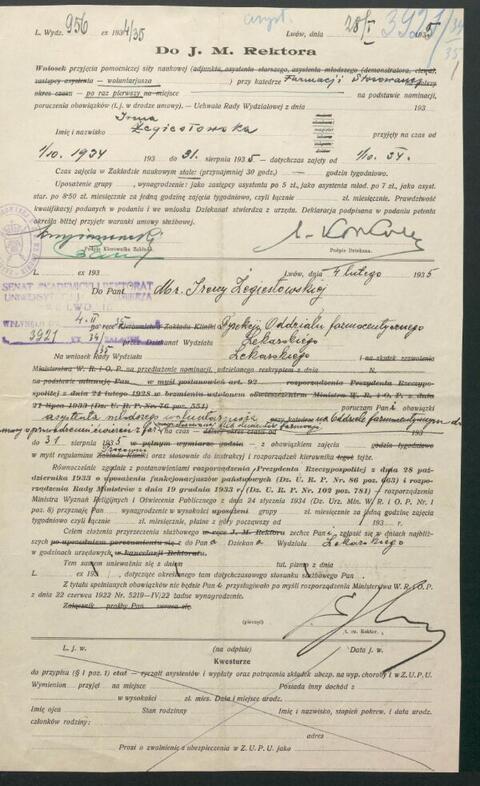 L. Wydz. 956 ex 1934/35
Lwów, dnia 28/I 1935
3921/34/35
Do J. M. Rektora
Wniosek przyjęcia pomocniczej siły naukowej (adjunkta, asystenta starszego, asystenta młodszego (demonstratora, elewa),
zastępcy asystenta — wolontariusza przy katedrze Farmacji Stosowanej
okres czasu — po raz pierwszy na miejsce na podstawie nominacji,
poruczenia obowiązków (t. j. w drodze umowy). — Uchwała Rady Wydziałowej z dnia 193
Imię i nazwisko Irena Żegiestowska przyjęty na czas od
1/10. 1934 193 do 31. sierpnia 1935 — dotychczas zajęty od 1/10. 34.
Czas zajęcia w Zakładzie naukowym stale: (przynajmniej 30 godz.) godzin tygodniowo.
Uposażenie grupy , wynagrodzenie: jako zastępcy asystenta po 5 zł., jako asystenta młod. po 7 zł., jako asyst.
star. po 8·50 zł. miesięcznie za jedną godzinę zajęcia tygodniowo, czyli łącznie zł. miesięcznie. Prawdziwość
kwalifikacyj podanych w podaniu i we wniosku Dziekanat stwierdza z urzędu. Deklaracja podpisana w podaniu petenta
określa bliżej przyjęte warunki umowy służbowej.
Podpis Kierownika Zakładu.
Podpis Dziekana.
L. ex 193
Lwów, dnia 4 lutego 1935
SENAT AKADEMICKI I REKTORAT
UNIWERSYTETU J. KAZIMIERZA
WE LWOWIE
WPŁYNĘŁO 4. II. 35
L. 3921 34/35
Do Pani Mr. Ireny Żegiestowskiej
na ręce Kierownictwa Zakładu Kliniki Dyrekcji Oddziału farmaceutycznego
przez Dziekanat Wydziału Lekarskiego
Na wniosek Rady Wydziału Lekarskiego i na skutek zezwolenia
Ministerstwa W. R. i O. P. na przedłożenie nominacji, udzielonego reskryptem z dnia N.
na podstawie mianuję Pan w myśl postanowień art. 92 rozporządzenia Prezydenta Rzeczypo-
spolitej z dnia 24 lutego 1928 w brzmieniu ustalonem obwieszczeniem Ministra W. R. i O. P. z dnia
21 lipca 1933 (Dz. U. R. P. Nr. 76 poz. 551) poruczam Pani obowiązki
asystenta młodszego wolontariusza przy katedrze na Oddziale farmaceutycznym
do 31 sierpnia 1935 w pełnym wymiarze godzin — z obowiązkiem zajęcia godzin tygodniowo
w myśl regulaminu Zakładu Kliniki oraz stosownie do instrukcyj i rozporządzeń kierownika tegoż tejże.
Równocześnie zgodnie z postanowieniami rozporządzenia Prezydenta Rzeczypospolitej z dnia 28 paź-
dziernika 1933 o uposażeniu funkcjonarjuszów państwowych (Dz. U. R. P. Nr. 86 poz. 663) i rozporzą-
dzenia Rady Ministrów z dnia 19 grudnia 1933 r. (Dz. U. R. P. Nr. 102 poz. 781) — rozporządzenia
Ministra Wyznań Religijnych i Oświecenia Publicznego z dnia 24 stycznia 1934 (Dz. Urz. Min. W. R. i O. P. Nr. 1
poz. 8) przyznaję Pan wynagrodzenie w wysokości uposażeni grupy zł. miesięcznie za jedną godzinę zajęć
tygodniowo czyli łącznie zł. miesięcznie, płatne z góry począwszy od 193 r.
Celem złożenia przyrzeczenia służbowego w ręce J. M. Rektora zechce Pani zgłosić się w dniach najbliż-
szych po uprzedniem porozumieniu się z do Pana Dziekana Wydziału Lekarskiego
w godzinach urzędowych w kancelarji Rektoratu.
Tem samem unieważnia się z dniem tut. pismo z dnia
L. ex 193 , dotyczące określenia tam dotychczasowego stosunku służbowego Pan
Z tytułu spełnianych obowiązków nie będzie Pani przysługiwało po myśli rozporządzenia Ministerstwa W. R. i O. P.
z dnia 22 czerwca 1922 Nr. 5219—IV/22 żadne wynagrodzenie.
Załącznik prośby Pan zwraca się.
(pieczęć)
t. cz. Rektor.
L. j. w. (na odpisie) Data j. w.
Kwesturze
do przypisu (§ 1 poz. 1) etat — ryczałt asystentów i wypłaty oraz potrącenia składek ubezp. na wyp. choroby i w Z. U. P. U.
Wymienion przyjęł na miejsce Posiada inny dochód z
w wysokości zł. mies. Data i miejsce urodz.
Imię ojca Stan rodzinny Imię i nazwisko, stopień pokrew. i data urodz.
członków rodziny:
adres
Prosi o zwolnienie z ubezpieczenia w Z. U. P. U. jako